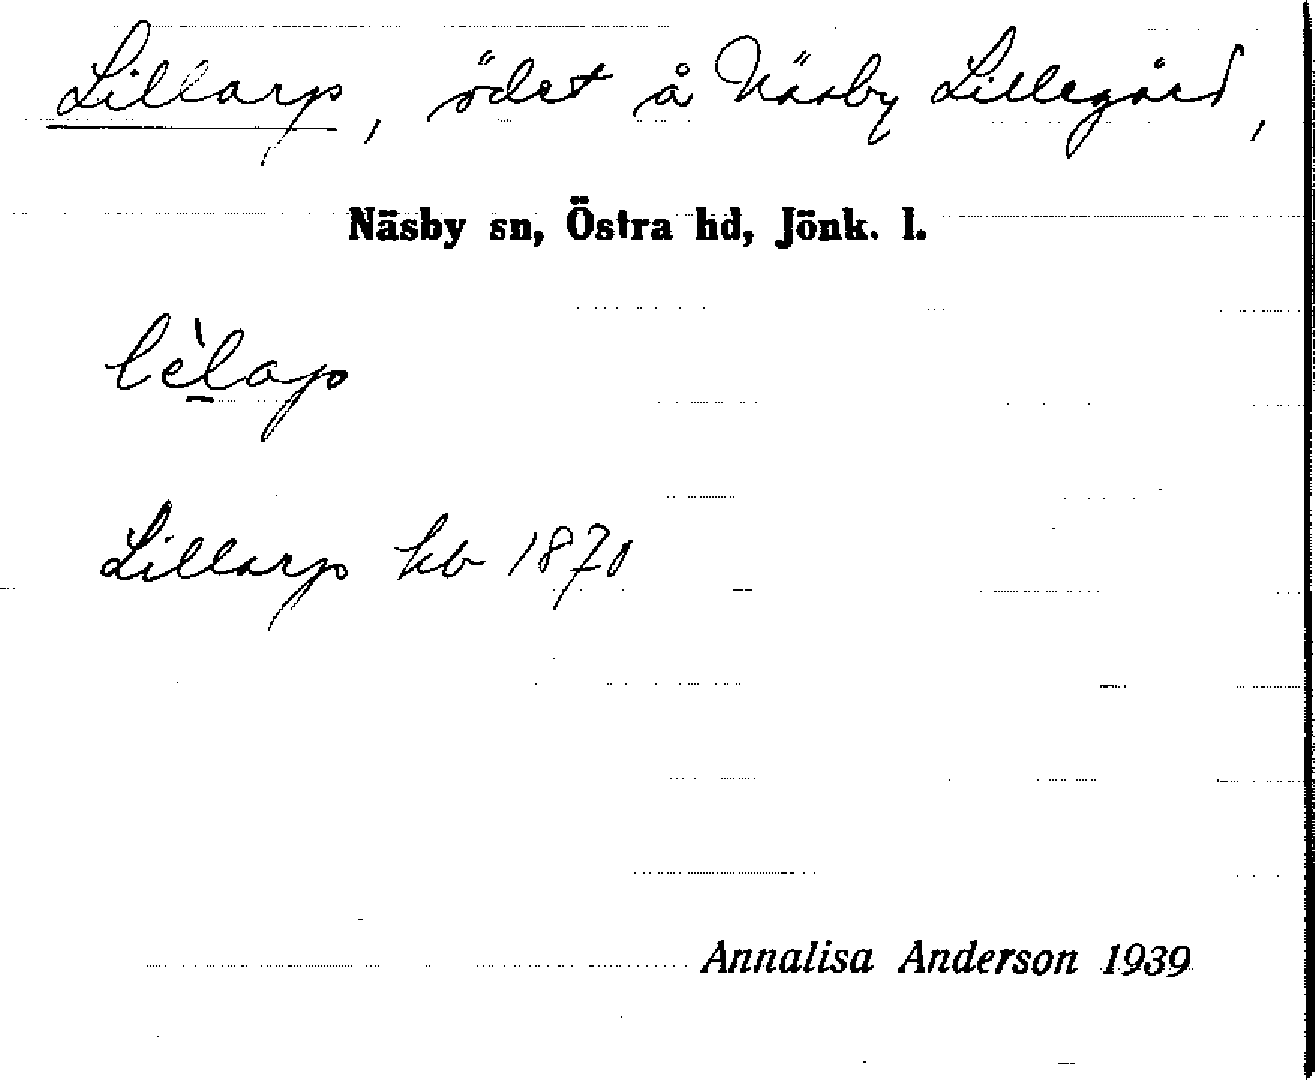 Lillarp, ödet å Näsby Lillegård,
Näsby sn, Östra hd, Jönk. l.
lèlap
Lillarp kb 1870
Annalisa Anderson 1939